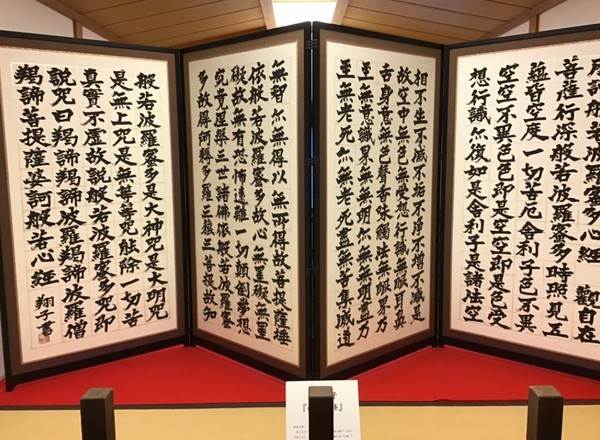 訶般若波羅蜜多心經 觀自在
菩薩行深般若波羅蜜多時照見五
蘊皆空度一切苦厄舍利子色不異
空空不異色色即是空空即是色受
想行識亦復如是舍利子是諸法空
相不生不滅不垢不淨不增不減是
故空中無色無受想行識無眼耳鼻
舌身意無色聲香味觸法無眼界乃
至無意識界無無明亦無無明盡乃
至無老死亦無老死盡無苦集滅道
無智亦無得以無所得故菩提薩埵
依般若波羅蜜多故心無罣礙無罣
礙故無有恐怖遠離一切顛倒夢想
究竟涅槃三世諸佛依般若波羅蜜
多故得阿耨多羅三藐三菩提故知
般若波羅蜜多是大神咒是大明咒
是無上咒是無等等咒能除一切苦
真實不虛故說般若波羅蜜多咒即
說咒曰羯諦羯諦波羅羯諦波羅僧
羯諦菩提薩婆訶般若心經 翔子書